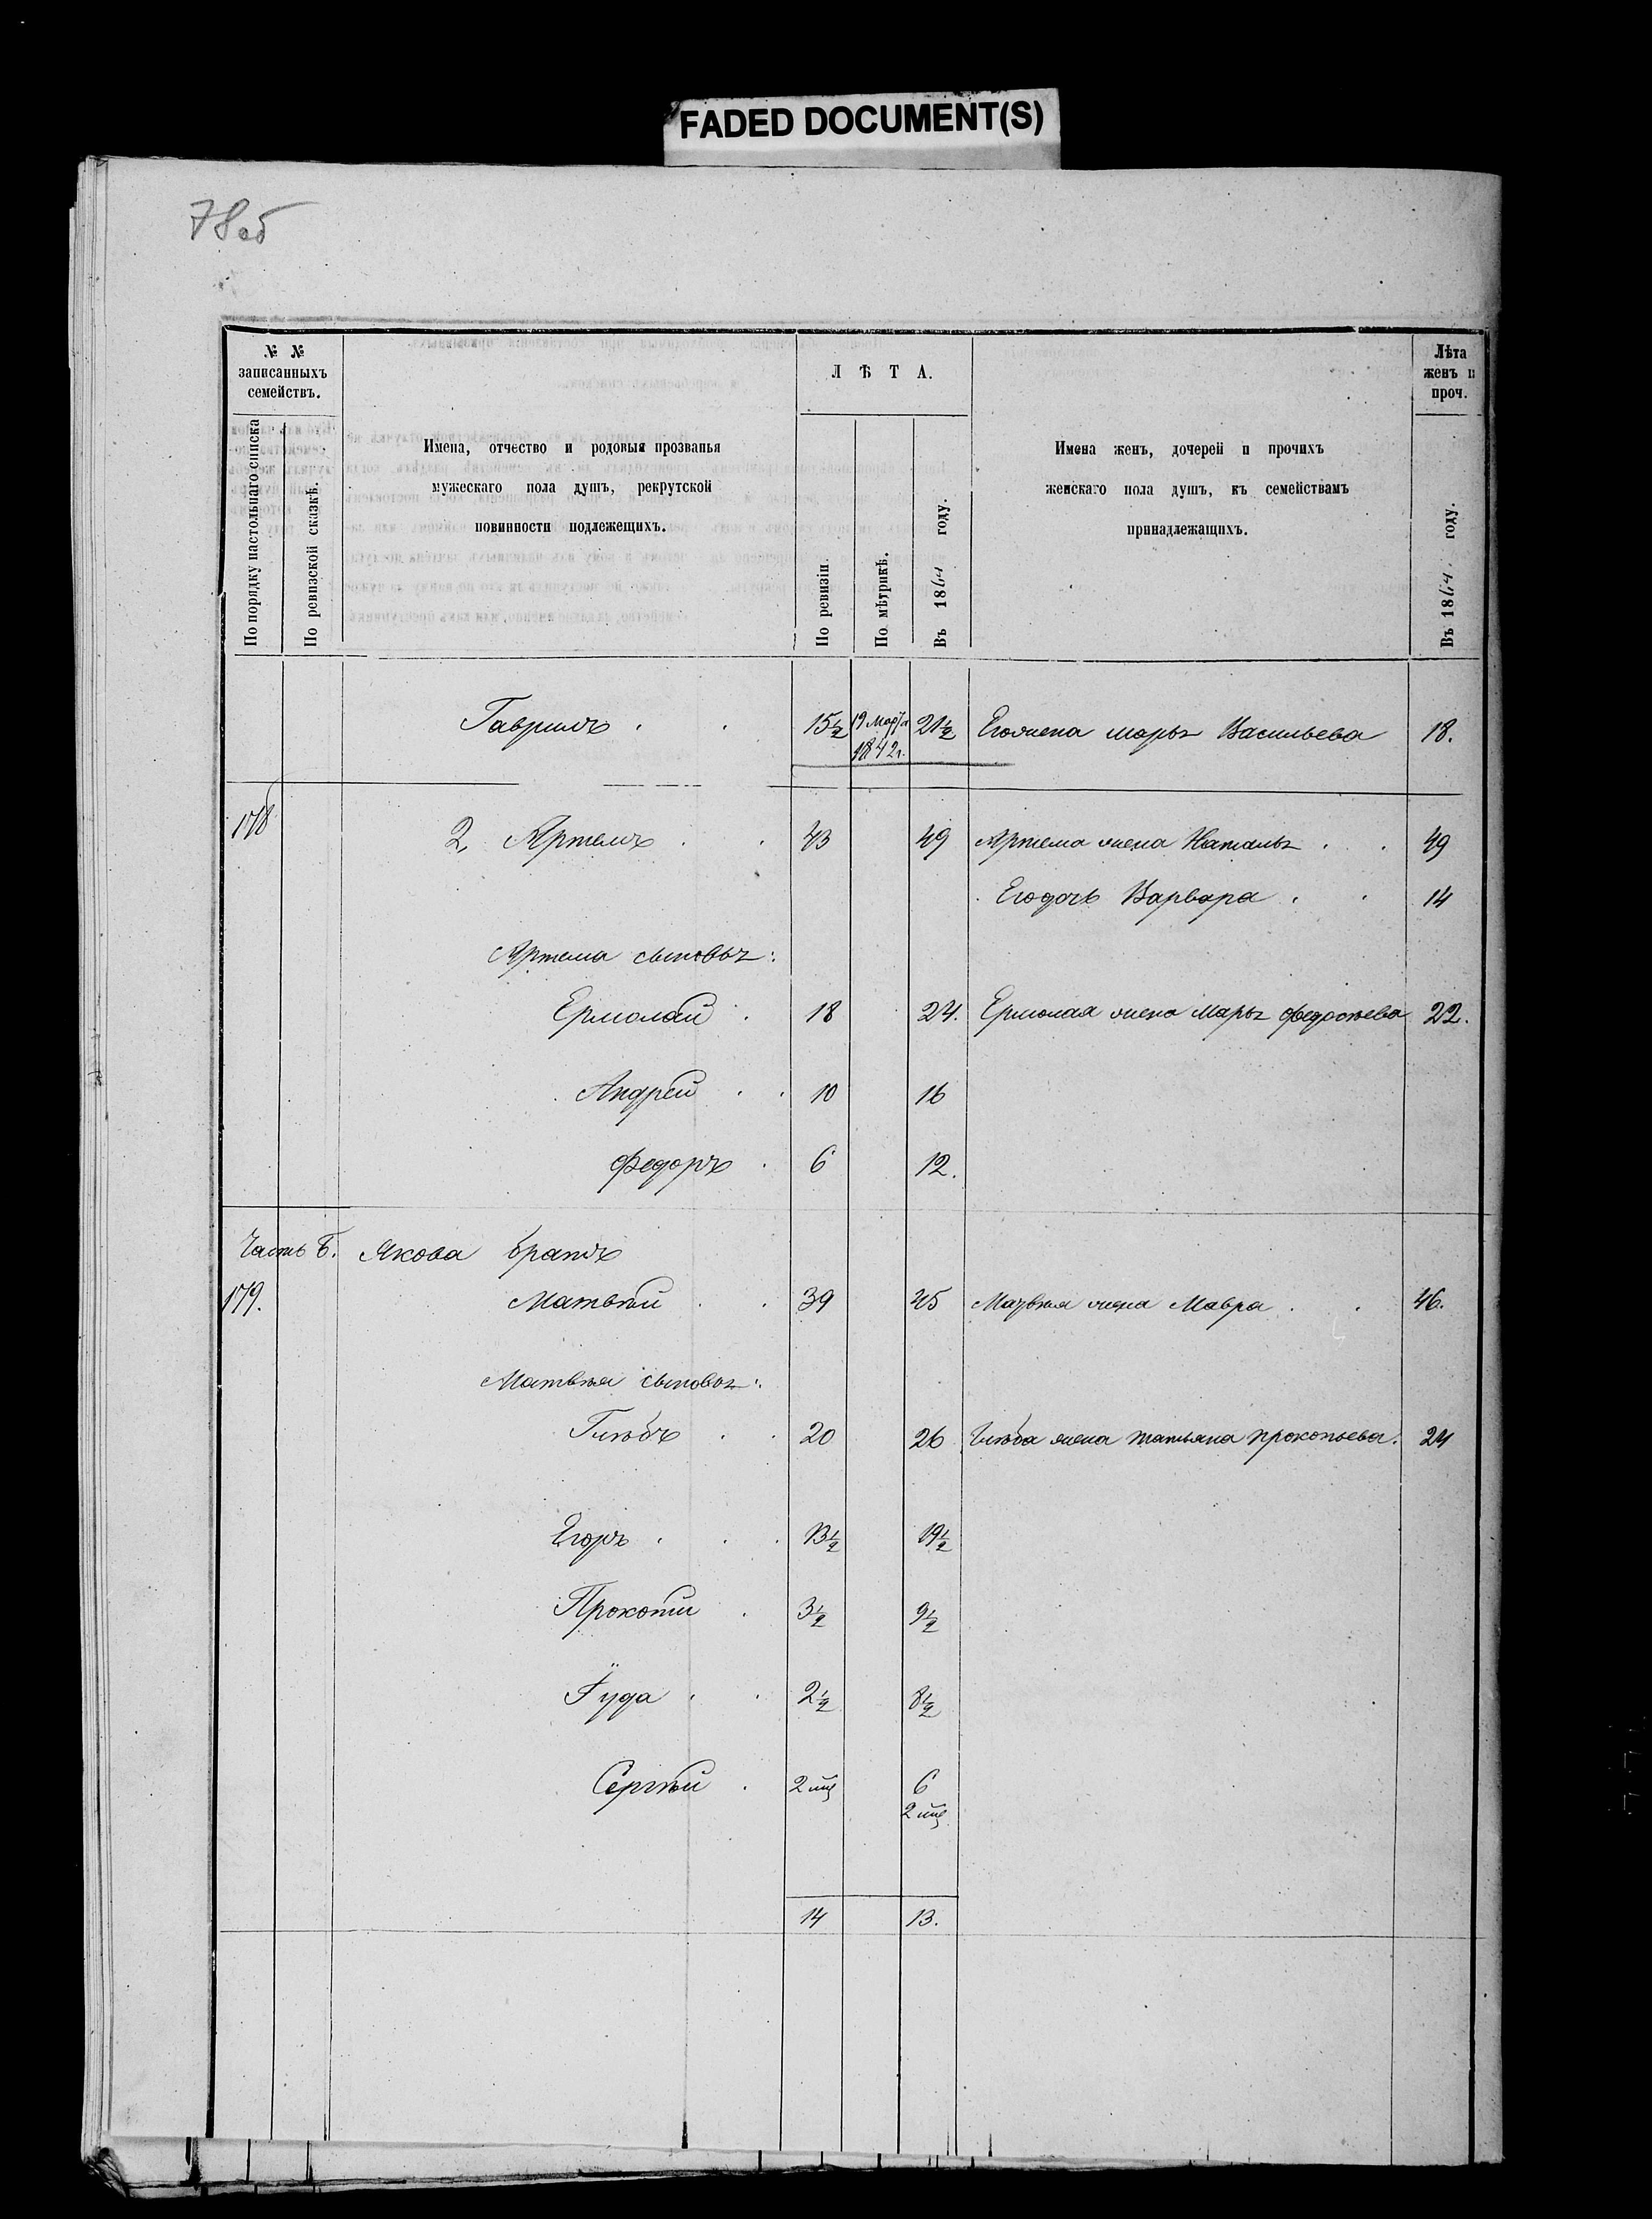 FADED DOCUMENT(S)
78об
№ №
записанныхъ
семействъ.
По порядку настольнаго списка
По ревизской сказкѣ.
Имена, отчество и родовыя прозванья
мужескаго пола душъ, рекрутской
повинности подлежещихъ.
ЛѢТА.
По ревизіи.
По мѣтрикѣ.
Въ 1864 году.
Имена женъ, дочерей и прочихъ
женскаго пола душъ, къ семействамъ
принадлежащихъ.
Лѣта
женъ и
проч.
Въ 1864. году.
Гаврилъ 15½ 19 Марта 1842г. 21½ Его жена Марья Васильева 18.
178 2, Артемъ 43 49 Артема жена Наталья 49
Его дочь Варвара 14
Артема сыновья:
Ермолай 18 24. Ермолая жена Марья Федосѣева 22.
Андрей 10 16
Федоръ 6 12.
Часть Б. Якова братъ
179. Матвѣй 39 45 Матвѣя жена Мавра 46.
Матвѣя сыновья:
Глѣбъ 20 26 Глѣба жена Татьяна Прокопьева. 24
Егоръ 13½ 19½
Прокопій 3½ 9½
Іуда 2½ 8½
Сергѣй 2 мц 6
2 мц
14 13.